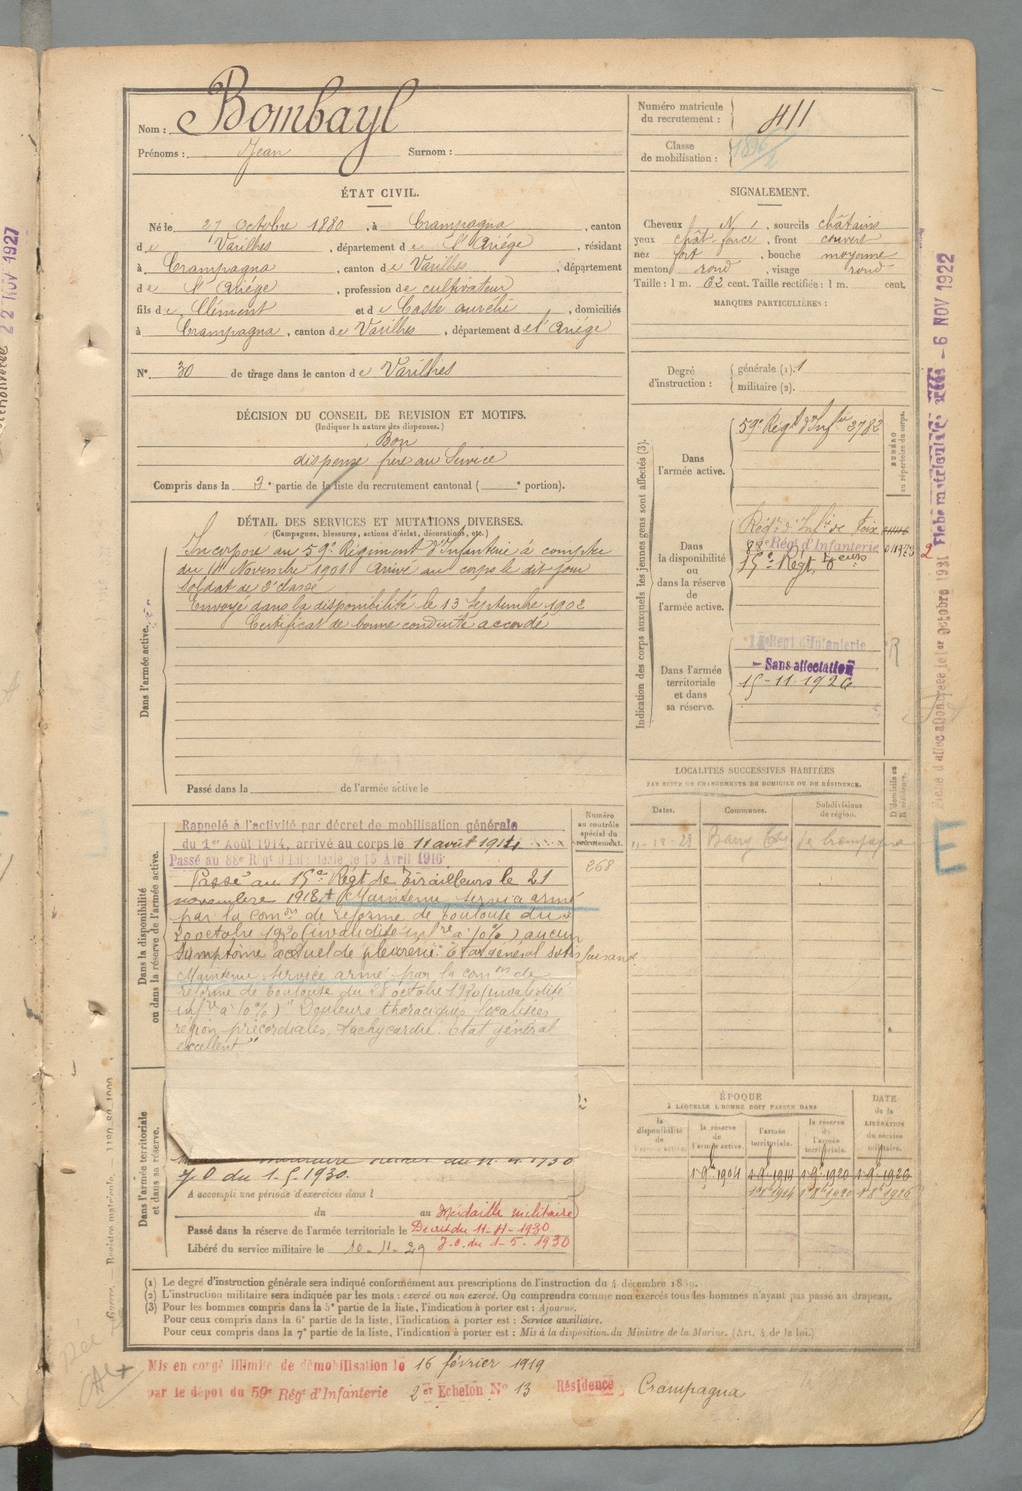 Nom : Bombayl
Prénoms : Jean Surnom :
Numéro matricule du recrutement : 411
Classe de mobilisation : 1896
ÉTAT CIVIL.
Né le 27 Octobre 1880, à Crampagna, canton
de Varilhes, département de l'Ariége, résidant
à Crampagna, canton de Varilhes, département
de l'Ariége, profession de cultivateur
fils de Clément et de Casse, domiciliés
à Crampagna, canton de Varilhes, département de l'Ariége
N° 30 de tirage dans le canton de Varilhes
SIGNALEMENT.
Cheveux N, sourcils châtains
yeux chât foncé, front couvert
nez fort, bouche moyenne
menton rond, visage rond
Taille : 1 m. 62 cent. Taille rectifiée : 1 m. cent.
MARQUES PARTICULIÈRES :
Degré d'instruction : générale (1). 1
militaire (2).
DÉCISION DU CONSEIL DE REVISION ET MOTIFS.
(Indiquer la nature des dispenses.)
Bon
dispensé frère au Service
Compris dans la 3e partie de la liste du recrutement cantonal ( e portion).
DÉTAIL DES SERVICES ET MUTATIONS DIVERSES.
(Campagnes, blessures, actions d'éclat, décorations, etc.)
Dans l'armée active.
Incorporé au 59e Régiment d'Infanterie à compter
du 14 Novembre 1901 Arrivé au corps le dit jour
soldat de 2e classe
Envoyé dans la disponibilité le 13 Septembre 1902
Certificat de bonne conduite accordé
Passé dans la de l'armée active le
Indication des corps auxquels les jeunes gens sont affectés (3).
NUMÉRO au répertoire du corps.
Dans l'armée active.
59e Régt d'Infrie 3782
Dans la disponibilité ou dans la réserve de l'armée active.
Régt d'Infie de Foix
88e Régt d'Infanterie
15e Régt
Dans l'armée territoriale et dans sa réserve.
Regt d'Infanterie
Sans affectation
15-11-1926
LOCALITÉS SUCCESSIVES HABITÉES
PAR SUITE DE CHANGEMENTS DE DOMICILE OU DE RÉSIDENCE.
Dates. Communes. Subdivisions de région. D domicile ou R résidence.
Barry
Dans la disponibilité ou dans la réserve de l'armée active.
Numéro au contrôle spécial du recrutement.
268
Rappelé à l'activité par décret de mobilisation générale
du 1er Août 1914, arrivé au corps le 11 août 1914
Passé au 88e Régt d'Infanterie le 15 Avril 1916
Passé au 15e Régt de Tirailleurs le 21
novembre 1918 Maintenu service armé
par la comon de réforme de Toulouse du
20 octobre 1920 (invalidité infre à 10%) aucun
symptôme actuel de pleurésie. Etat général satisfaisant
Maintenu service armé par la comon de
réforme de Toulouse du 28 octobre 1920 (invalidité
infre à 10%) "Douleurs thoraciques localisées
région précordiales, tachycardie. Etat général
excellent"
Dans l'armée territoriale et dans sa réserve.
J O du 1-5-1930.
A accompli une période d'exercices dans l
du au
Médaille militaire
Passé dans la réserve de l'armée territoriale le
Décret du 11-4-1930
J.O. du 1-5-1930
Libéré du service militaire le 10-11-29
ÉPOQUE
À LAQUELLE L'HOMME DOIT PASSER DANS
DATE de la LIBÉRATION du service militaire.
la disponibilité de l'armée active.
la réserve de l'armée active.
l'armée territoriale.
la réserve de l'armée territoriale.
1 9bre 1904 1 9bre 1914 1 9bre 1920 1 9bre 1926
(1) Le degré d'instruction générale sera indiqué conformément aux prescriptions de l'instruction du 4 décembre 1889.
(2) L'instruction militaire sera indiquée par les mots : exercé ou non exercé. On comprendra comme non exercés tous les hommes n'ayant pas passé au drapeau.
(3) Pour les hommes compris dans la 5e partie de la liste, l'indication à porter est : Ajourné.
Pour ceux compris dans la 6e partie de la liste, l'indication à porter est : Service auxiliaire.
Pour ceux compris dans la 7e partie de la liste, l'indication à porter est : Mis à la disposition du Ministre de la Marine. (Art. 4 de la loi.)
Mis en congé illimité de démobilisation le 16 février 1919
par le dépôt du 59e Régt d'Infanterie 2e Echelon N° 13 Résidence Crampagna
22 NOV 1927
- 6 NOV 1922